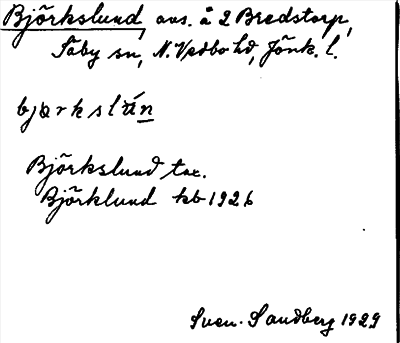 Björkslund, avs. å 2 Bredstorp,
Säby sn, N. Vedbo hd, Jönk. l.
bjœrkslún
Björkslund tax.
Björklund kb 1926
Sven. Sandberg 1929